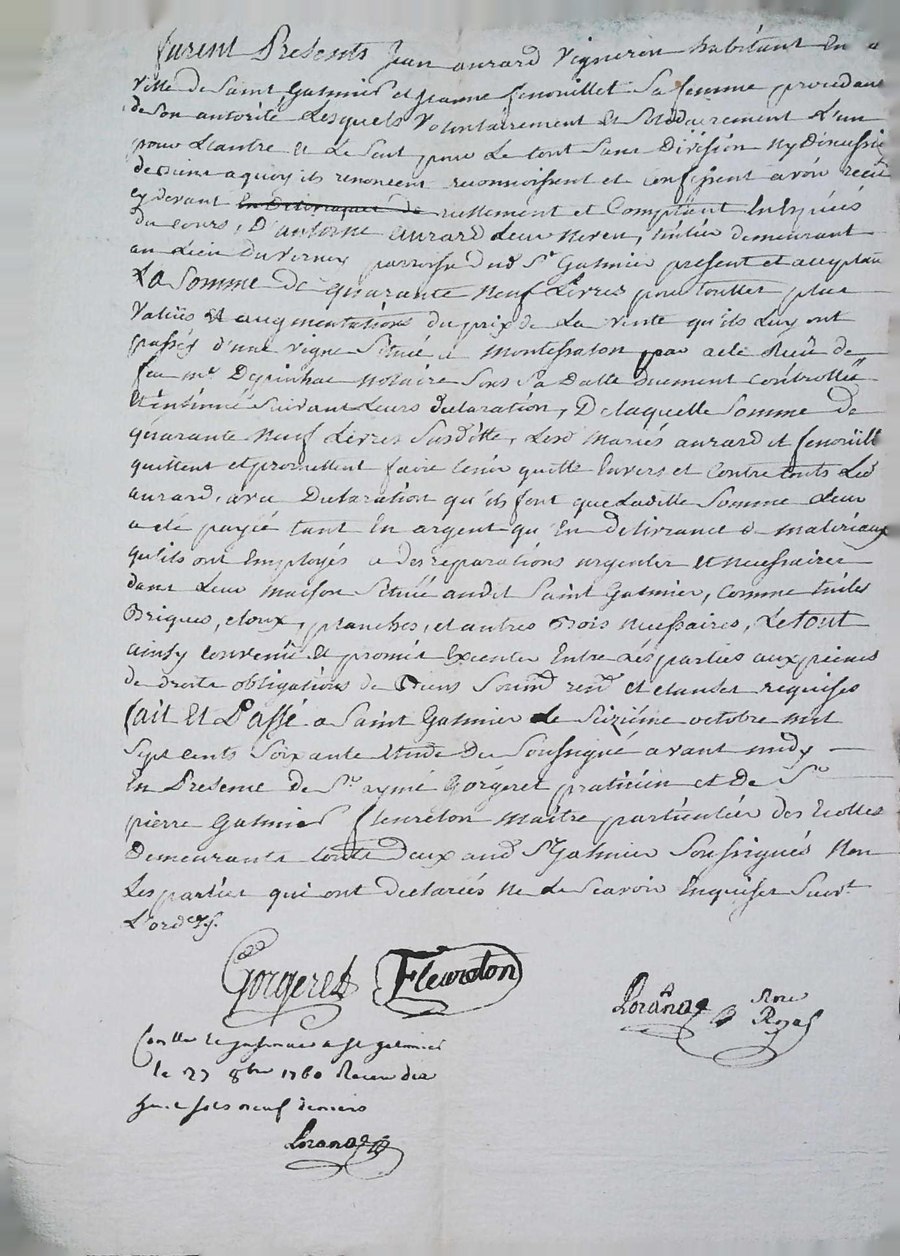 furent Presents Jean aurard Vigneron habitant En
Ville de Saint Galmier et jeanne fenouillet Sa femme procedant
de Son autorité, Lesquels Volontairement Et Solidairement L'un
pour Lautre et Le Seul pour Le tout Sans Division Ny Discussion
a quoy ils renoncent reconnoissent et confessent avoir receu
cy devant reellement et Comptant En Espèces
du cours, D'antoine aurard Leur neveu, demeurant
au Lieu Duvernay parroisse dud St Galmier present et acceptant
La Somme De quarante Neuf Livres pour touttes plus
Valües Et augmentations du prix de La Vente qu'ils Luy ont
passés d'une vigne Située a par acte Reçû de
feu me Depinhac Notaire Sous Sa Datte Duement contrôllée
Et insinué Suivant Leurs declaration, De laquelle Somme de
quarante Neuf Livres Susditte, Lesd Mariés aurard et fenoüillet
quittent et promettent faire tenir quitte Envers et Contre touts Led
aurard, avec Declaration qu'ils font que Laditte Somme Leur
a été payée tant En argent qu'En délivrance de materiaux
qu'ils ont Employés a des reparations urgentes et necessaires
dans Leur maison Située audit Saint Galmier, comme tuiles
Briques, cloux, planches, et autres Bois necessaires, Le tout
ainsy convenû Et promis Executer Entre Les parties aux peines
de droits obligations de Biens Soumd rend et clauses requises
fait Et Passé a Saint Galmier Le Seizième octobre mil
Sept cents Soixante Etude Du Soussigné avant midy
En Presence de Sr. aymé Gorgeret praticien et De Sr
pierre Galmier fleureton Maitre particulier des Ecolles
Demeurants touts Deux aud St Galmier Soussignés Non
Les parties qui ont declarées Ne Le Scavoir Enquises Suivt
L'ordce
Gorgeret Fleureton
Loranas Nore
Royal
Conlle a St galmier
le 27 8bre 1760 Receu dix
sols neuf deniers
Loranas